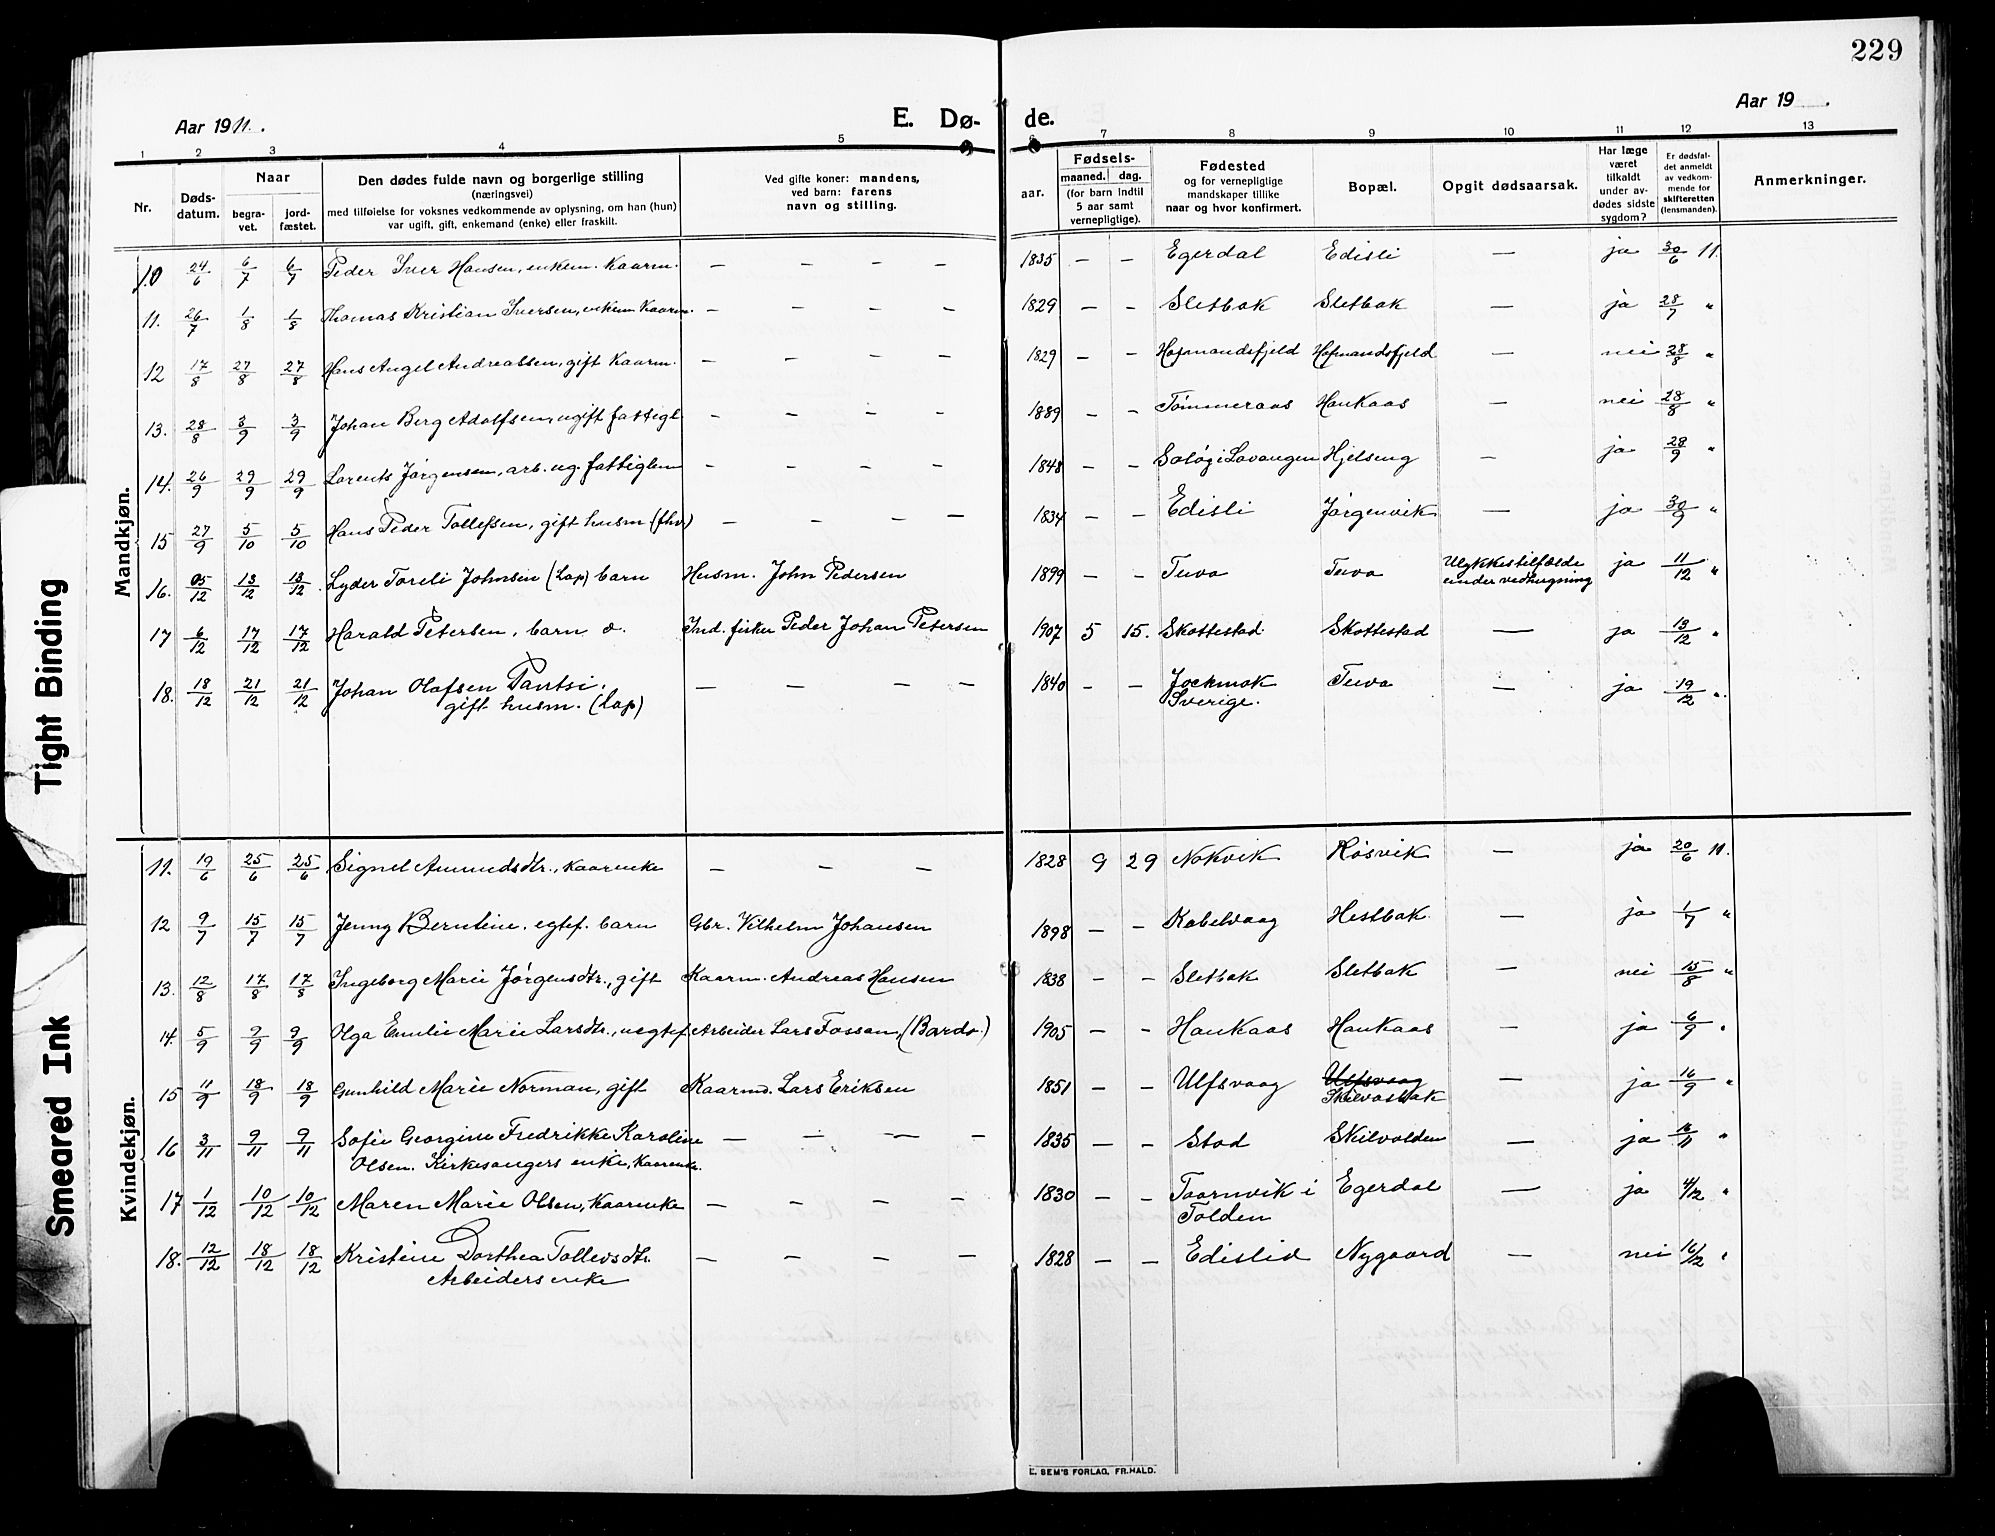 229
Aar 1911.
E. Dø-
de.
Aar 19 .
1 2 3 4 5 6 7 8 9 10 11 12 13
Nr.
Døds-
datum.
Naar
begra-
vet.
jord-
fæstet.
Den dødes fulde navn og borgerlige stilling
(næringsvei)
med tilføielse for voksnes vedkommende av oplysning, om han (hun)
var ugift, gift, enkemand (enke) eller fraskilt.
Ved gifte koner: mandens,
ved barn: farens
navn og stilling.
Fødsels-
aar.
maaned. dag.
(for barn indtil
5 aar samt
vernepligtige).
Fødested
og for vernepligtige
mandskaper tillike
naar og hvor konfirmert.
Bopæl.
Opgit dødsaarsak.
Har læge
været
tilkaldt
under av-
dødes sidste
sygdom?
Er dødsfal-
det anmeldt
av vedkom-
mende for
skifteretten
(lensmanden).
Anmerkninger.
Mandkjøn.
10 24/6 6/7 6/7 Peder Iver Hansen, enkem. Kaarm. — — — — 1835 — — Egerdal Edisli — ja 30/6 11
11. 26/7 1/8 1/8 Thomas Kristian Iversen, enkem Kaarm. — — — — 1829 — — Sletbak Sletbak — ja 28/7 "
12 17/8 27/8 27/8 Hans Angel Andreassen, gift Kaarm. — — — — 1829 — — Hofmandsfjeld Hofmandsfjeld — nei 28/8 "
13. 28/8 3/9 3/9 Johan Berg Adolfsen, ugift fattigl. — — — — 1889 — — Tømmeraas Haukaas — nei 28/8 "
14. 26/9 29/9 29/9 Lorents Jørgensen, arb. ug. fattiglem — — — — 1848 — — Soløy i Lavangen Hjelseng — ja 28/9 "
15 27/9 5/10 5/10 Hans Peder Tollefsen, gift husm (fhv) — — — — 1834 — — Edisli Jørgenvik — ja 30/9 "
16. 05/12 13/12 13/12. Lyder Toreli Johnsen (Lap) barn Husm. John Pedersen 1899 — — Tuva Tuva Ulykkestilfælde
under vedhugning ja 11/12 "
17 6/12 17/12 17/12 Harald Petersen, barn d. Ind. fisker Peder Johan Petersen 1907 5 15. Skottestad Skottestad — ja 13/12 "
18. 18/12 21/12 21/12 Johan Olafsen Pantsi. — — — — 1840 — — Jockmok Tuva — ja 19/12 "
gift husm. (Lap) Sverige.
Kvindekjøn.
11. 19/6 25/6 25/6 Signel Amundsdtr., kaarenke — — — 1828 9 29 Nokvik Røsvik — ja 20/6 11.
12 9/7 15/7 15/7 Jenny Berntine. egtef. barn Gbr. Vilhelm Johansen 1898 — — Kabelvaag Hestbak — ja 1/7 "
13. 12/8 17/8 17/8 Ingeborg Marie Jørgensdtr., gift Kaarm. Andreas Hansen 1838 — — Sletbak Sletbak — nei 15/8 "
14. 5/9 9/9 9/9 Olga Emilie Marie Larsdtr., uegtef. Arbeider Lars Fossan, (Bardo.) 1905 — — Haukaas Haukaas — ja 6/9 "
15 11/9 18/9 18/9 Gunhild Marie Norman, gift Kaarmd. Lars Eriksen 1851 — — Ulfsvaag Ulfsvaag — ja 16/9 "
Skilvasbak
16 3/11 9/11 9/11 Sofie Georgine Fredrikke Karoline — — — — 1835 — — Stod Skilvolden — ja 16/11 "
Olsen. Kirkesangers enke, Kaarenke.
17 1/12 10/12 10/12 Maren Marie Olsen, Kaarenke — — — — 1830 — — Taarnvik i Egerdal — ja 4/12 "
Folden
18. 12/12 18/12 18/12 Kristine Dorthea Tollevsdtr. — — — — 1828 — — Edislid Nygaard — nei 16/12 "
Arbeiders enke
E. SEM'S FORLAG, FR.HALD.
Tight Binding
Smeared Ink